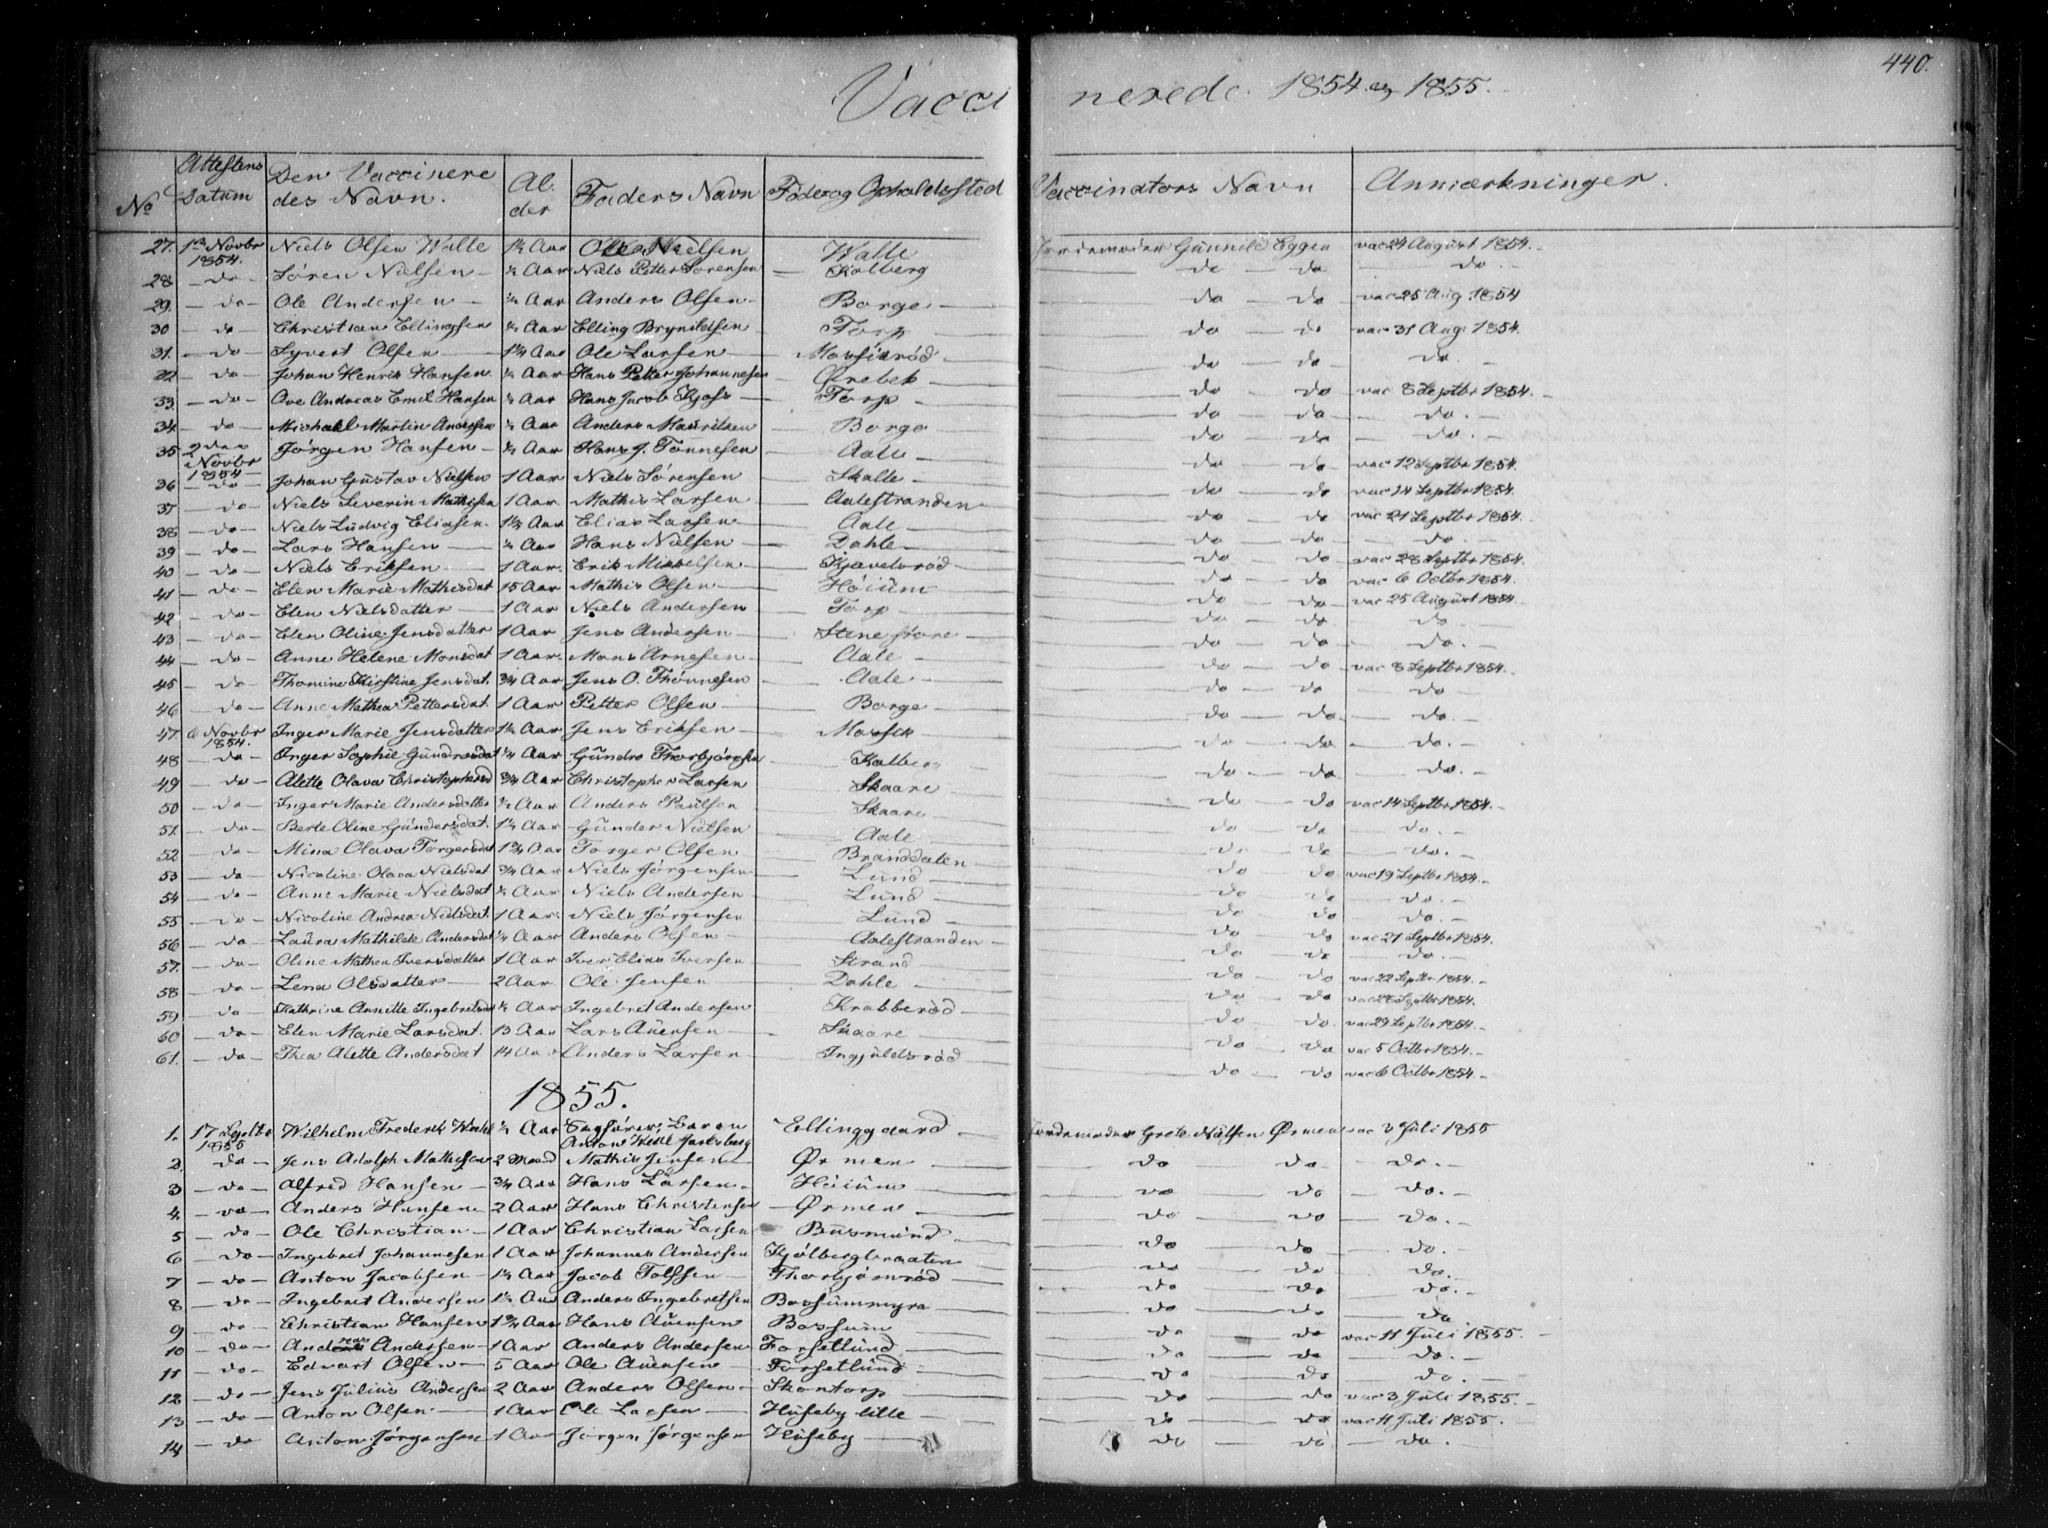 440.
Vaccinerede 1854 og 1855.
No Attestens Datum Den Vaccineredes Navn. Alder Faders Navn Føde og Opholdssted Vaccinators Navn Anmærkninger.
27. 1ste Novbr 1854. Niels Olsen Walle 1½ Aar Ole Nielsen Walle Jordemoder Gunnild Eggen vac 24 August 1854.
28 do Søren Nielsen ½ Aar Niels Petter Sørensen Kolberg do do do.
29. do Ole Andersen ¼ Aar Anders Olsen Borge do do vac 25 Aug. 1854
30 do Christian Ellingsen ½ Aar Elling Brynildsen Torp do do vac 31 Aug. 1854.
31. do Syvert Olsen 1¼ Aar Ole Larsen do do do.
32 do Johan Henrik Hansen ½ Aar Hans Petter Johannesen Ørebek do do vac 8 Septbr 1854.
33. do Ove Andreas Emil Hansen ½ Aar Hans Jacob Torp do do do.
34 do Michael Martin Andersen ½ Aar Anders Mauritzen Borge do do do.
35 2den Novbr 1854 Jørgen Hansen ½ Aar Hans J. Tønnesen Aale do do vac 12 Septbr 1854.
36 do Johan Gustav Nielsen 1 Aar Niels Sørensen Skalle do do vac 14 Septbr 1854.
37 do Niels Severin Mathisen 1 Aar Mathis Larsen Aalestranden do do vac 21 Septbr 1854.
38 do Niels Ludvig Eliasen 1½ Aar Elias Larsen Aale do do do.
39 do Lars Hansen ½ Aar Hans Nielsen Dahle do do vac 28 Septbr 1854.
40 do Niels Eriksen 1 Aar Erik Mikkelsen Kjævelsrød do do vac 6 Octbr 1854.
41 do Elen Marie Mathisdat 15 Aar Mathis Olsen Høium do do vac 25 August 1854.
42 do Elen Nielsdatter 1 Aar Niels Andersen Torp do do do
43 do Elen Oline Jensdatter 1 Aar Jens Andersen Stene store do do do.
44 do Anne Helene Monsdat 1 Aar Mons Arnesen Aale do do vac 8 Septbr 1854.
45 do Thomine Kirstine Jensdat. ¾ Aar Jens O. Thønnesen Aale do do do
46 do Anne Mathea Pettersdat 1 Aar Petter Olsen Borge do do do.
47. 6 Novbr 1854. Inger Marie Jensdatter 1½ Aar Jens Eriksen do do do.
48 do Inger Sophie Gundrosdat ½ Aar Gundro Thorbjørnsen Kalberg do do do.
49 do Alette Olava Christophersd ¾ Aar Christopher Larsen Skaare do do vac 14 Septbr 1854.
50 do Inger Marie Andersdatter ½ Aar Anders Paulsen Skaare do do do.
51. do Berte Oline Gundersdat. 1½ Aar Gunder Nielsen Aale do do do.
52 do Mina Olava Torgersdat 1¾ Aar Torger Olsen Branddalen do do vac 19 Septbr 1854.
53 do Nicoline Olava Nielsdat ¾ Aar Niels Jørgensen Lund do do do.
54 do Anne Marie Nielsdat ½ Aar Niels Andersen Lund do do do.
55 do Nicoline Andrea Nielsdat. 1 Aar. Niels Jørgensen Lund do do vac 21 Septbr 1854.
56 do Laura Mathilde Andersdat ½ Aar Anders Olsen Aalestranden do do do.
57. do Oline Mathea Iversdatter 1 Aar Iver Elias Iversen Strand do do vac 22 Septbr 1854.
58 do Lena Olsdatter 2 Aar Ole Jensen Dahle do do vac 28 Septbr 1854.
59 do Kathrine Annette Ingebretsdat ½ Aar Ingebret Andersen Krabberød do do vac 29 Septbr 1854.
60 do Elen Marie Larsdat. 13 Aar Lars Auensen Skaare do do vac 5 Octbr 1854.
61. do Thea Alette Andersdat 14 Aar Anders Larsen Ingjuldsrød do do vac 6 Octbr 1854.
1855.
1. 17 Septbr 1855 Wilhelm Frederik ½ Aar Anton Elinggaard Jordemoder Grete Nielsen Ørmen vac 3 Juli 1855
2. do Jens Adolph Mathisen 2 Maaned Mathis Jensen Ørmen do do do.
3 do Alfred Hansen ¾ Aar Hans Larsen Høium do do do.
4. do Anders Hansen 2 Aar Hans Christensen Ørmen do do do.
5 do Ole Christian 1 Aar Christian Larsen Busmund do do do.
6 do Ingebret Johannesen 1 Aar Johannes Andersen Kjølbergbraaten do do do.
7 do Anton Jacobsen 1½ Aar Jacob Tolfsen Thorbjørnrød do do do.
8 do Ingebret Andersen 1½ Aar Anders Ingebretsen Bossummyra do do do
9 do Christian Hansen 1¾ Aar Hans Auensen Bossum do do vac 11 Juli 1855.
10 do Andreas Andersen 1 Aar Anders Andersen Forsetlund do do do.
11 do Edvart Olsen 5 Aar Ole Auensen Forsetlund do do do.
12 do Jens Julius Andersen 2 Aar Anders Olsen Skontorp do do vac 3 Juli 1855.
13 do Anton Olsen 1 Aar Ole Larsen Huseby lille do do vac 11 Juli 1855.
14 do Anton Jørgensen 1 Aar Jørgen Jørgensen Huseby do do do.